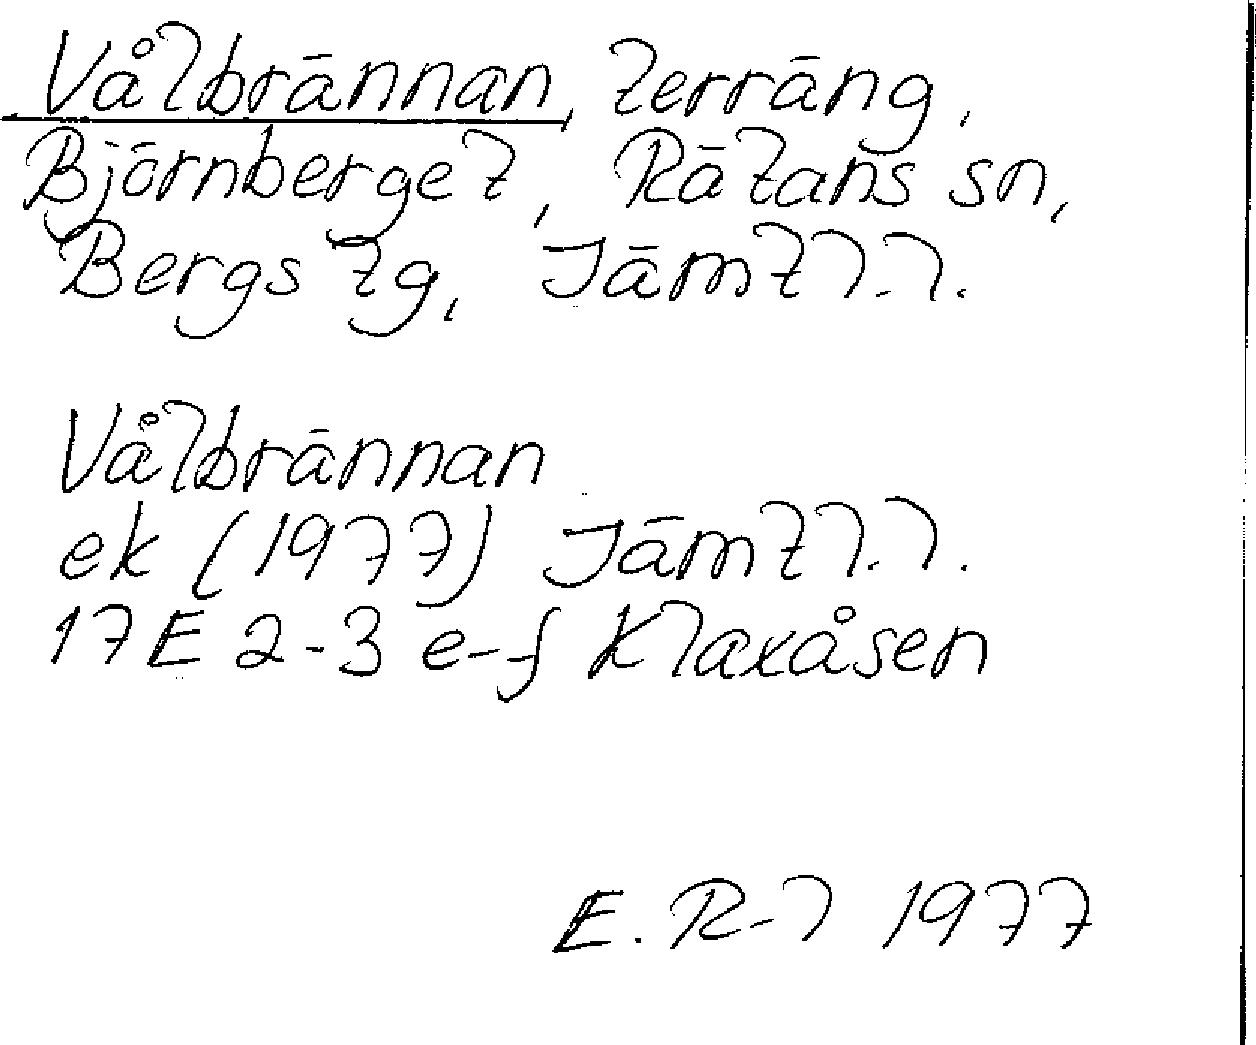 Vålbrännan, terräng,
Björnberget, Rätans sn,
Bergs tg, Jämtl.l.
Vålbrännan
ek (1977) Jämtl.l.
17E 2-3 e-f Klaxåsen
E. R-l 1977